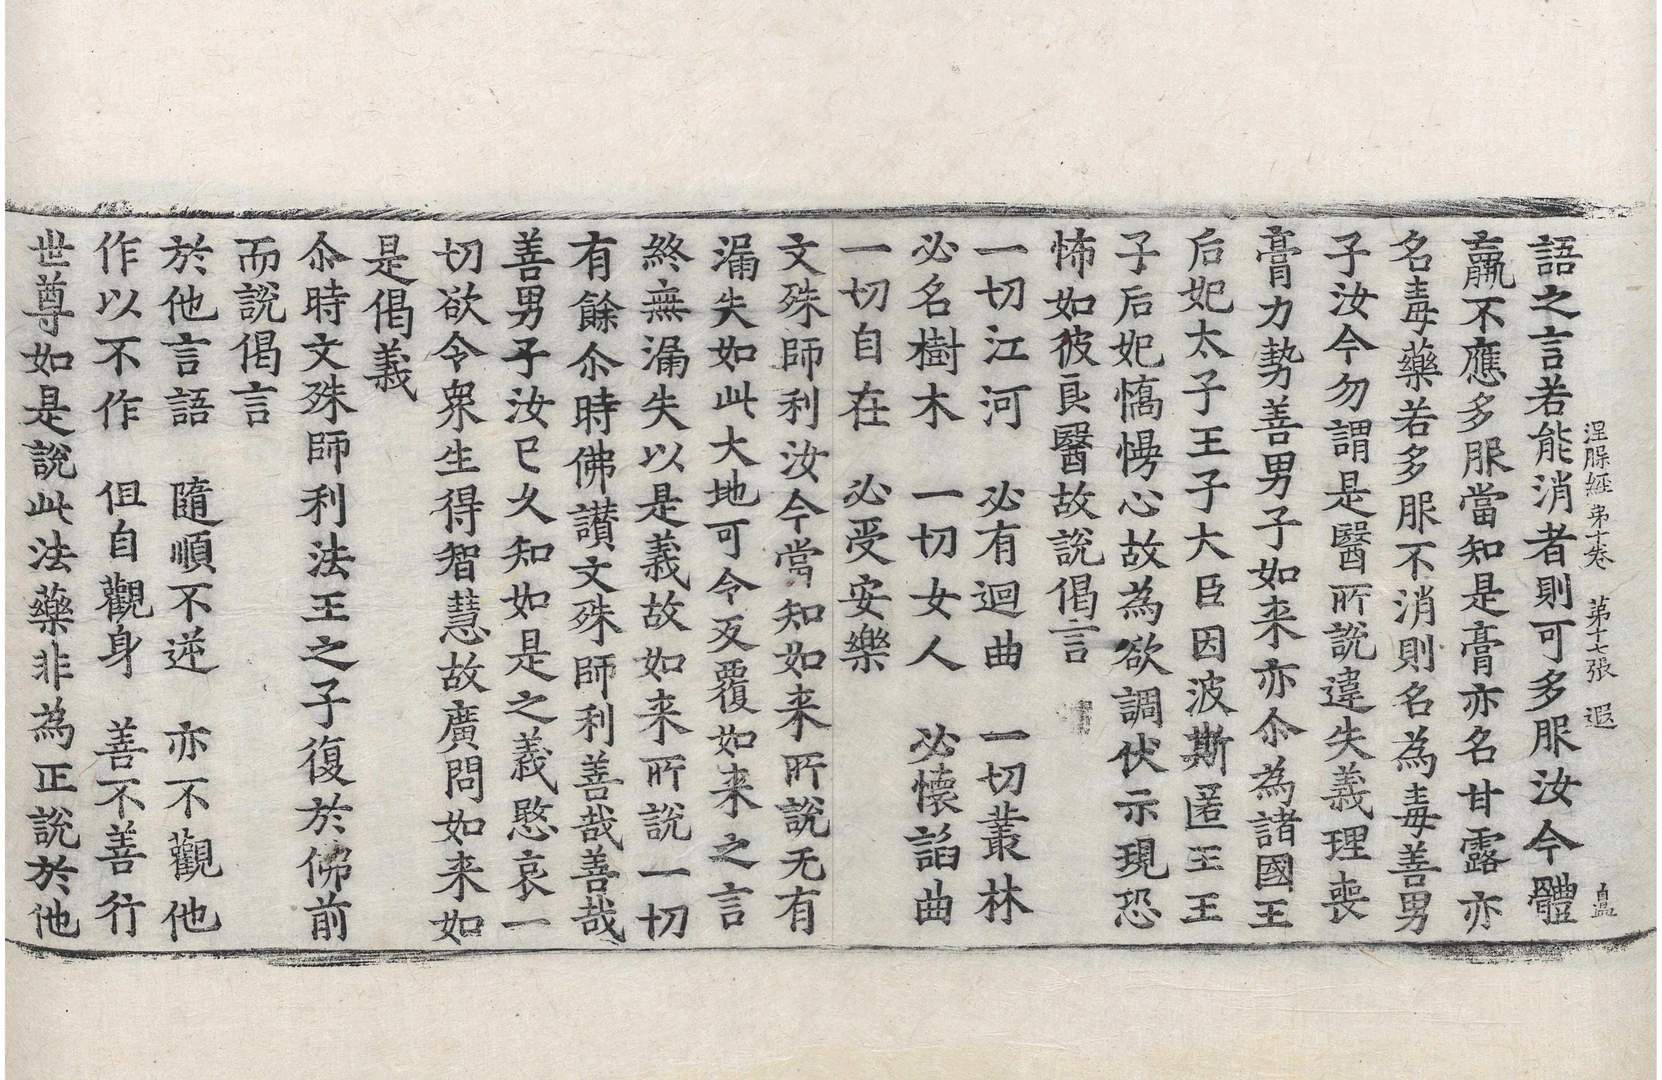 涅槃經第十卷 第十七張 遐
語之言若能消者則可多服汝今體
羸不應多服當知是膏亦名甘露亦
名毒藥若多服不消則名為毒善男
子汝今勿謂是醫所說違失義理喪
膏力勢善男子如来亦尒為諸國王
后妃太子王子大臣因波斯匿王王
子后妃憍慢心故為欲調伏示現恐
怖如彼良醫故說偈言
一切江河 必有迴曲 一切叢林
必名樹木 一切女人 必懷諂曲
一切自在 必受安樂
文殊師利汝今當知如来所說无有
漏失如此大地可令反覆如来之言
終無漏失以是義故如来所說一切
有餘尒時佛讃文殊師利善哉善哉
善男子汝已久知如是之義愍哀一
切欲令衆生得智慧故廣問如来如
是偈義
尒時文殊師利法王之子復於佛前
而說偈言
於他言語 隨順不逆 亦不觀他
作以不作 但自觀身 善不善行
世尊如是說此法藥非為正說於他